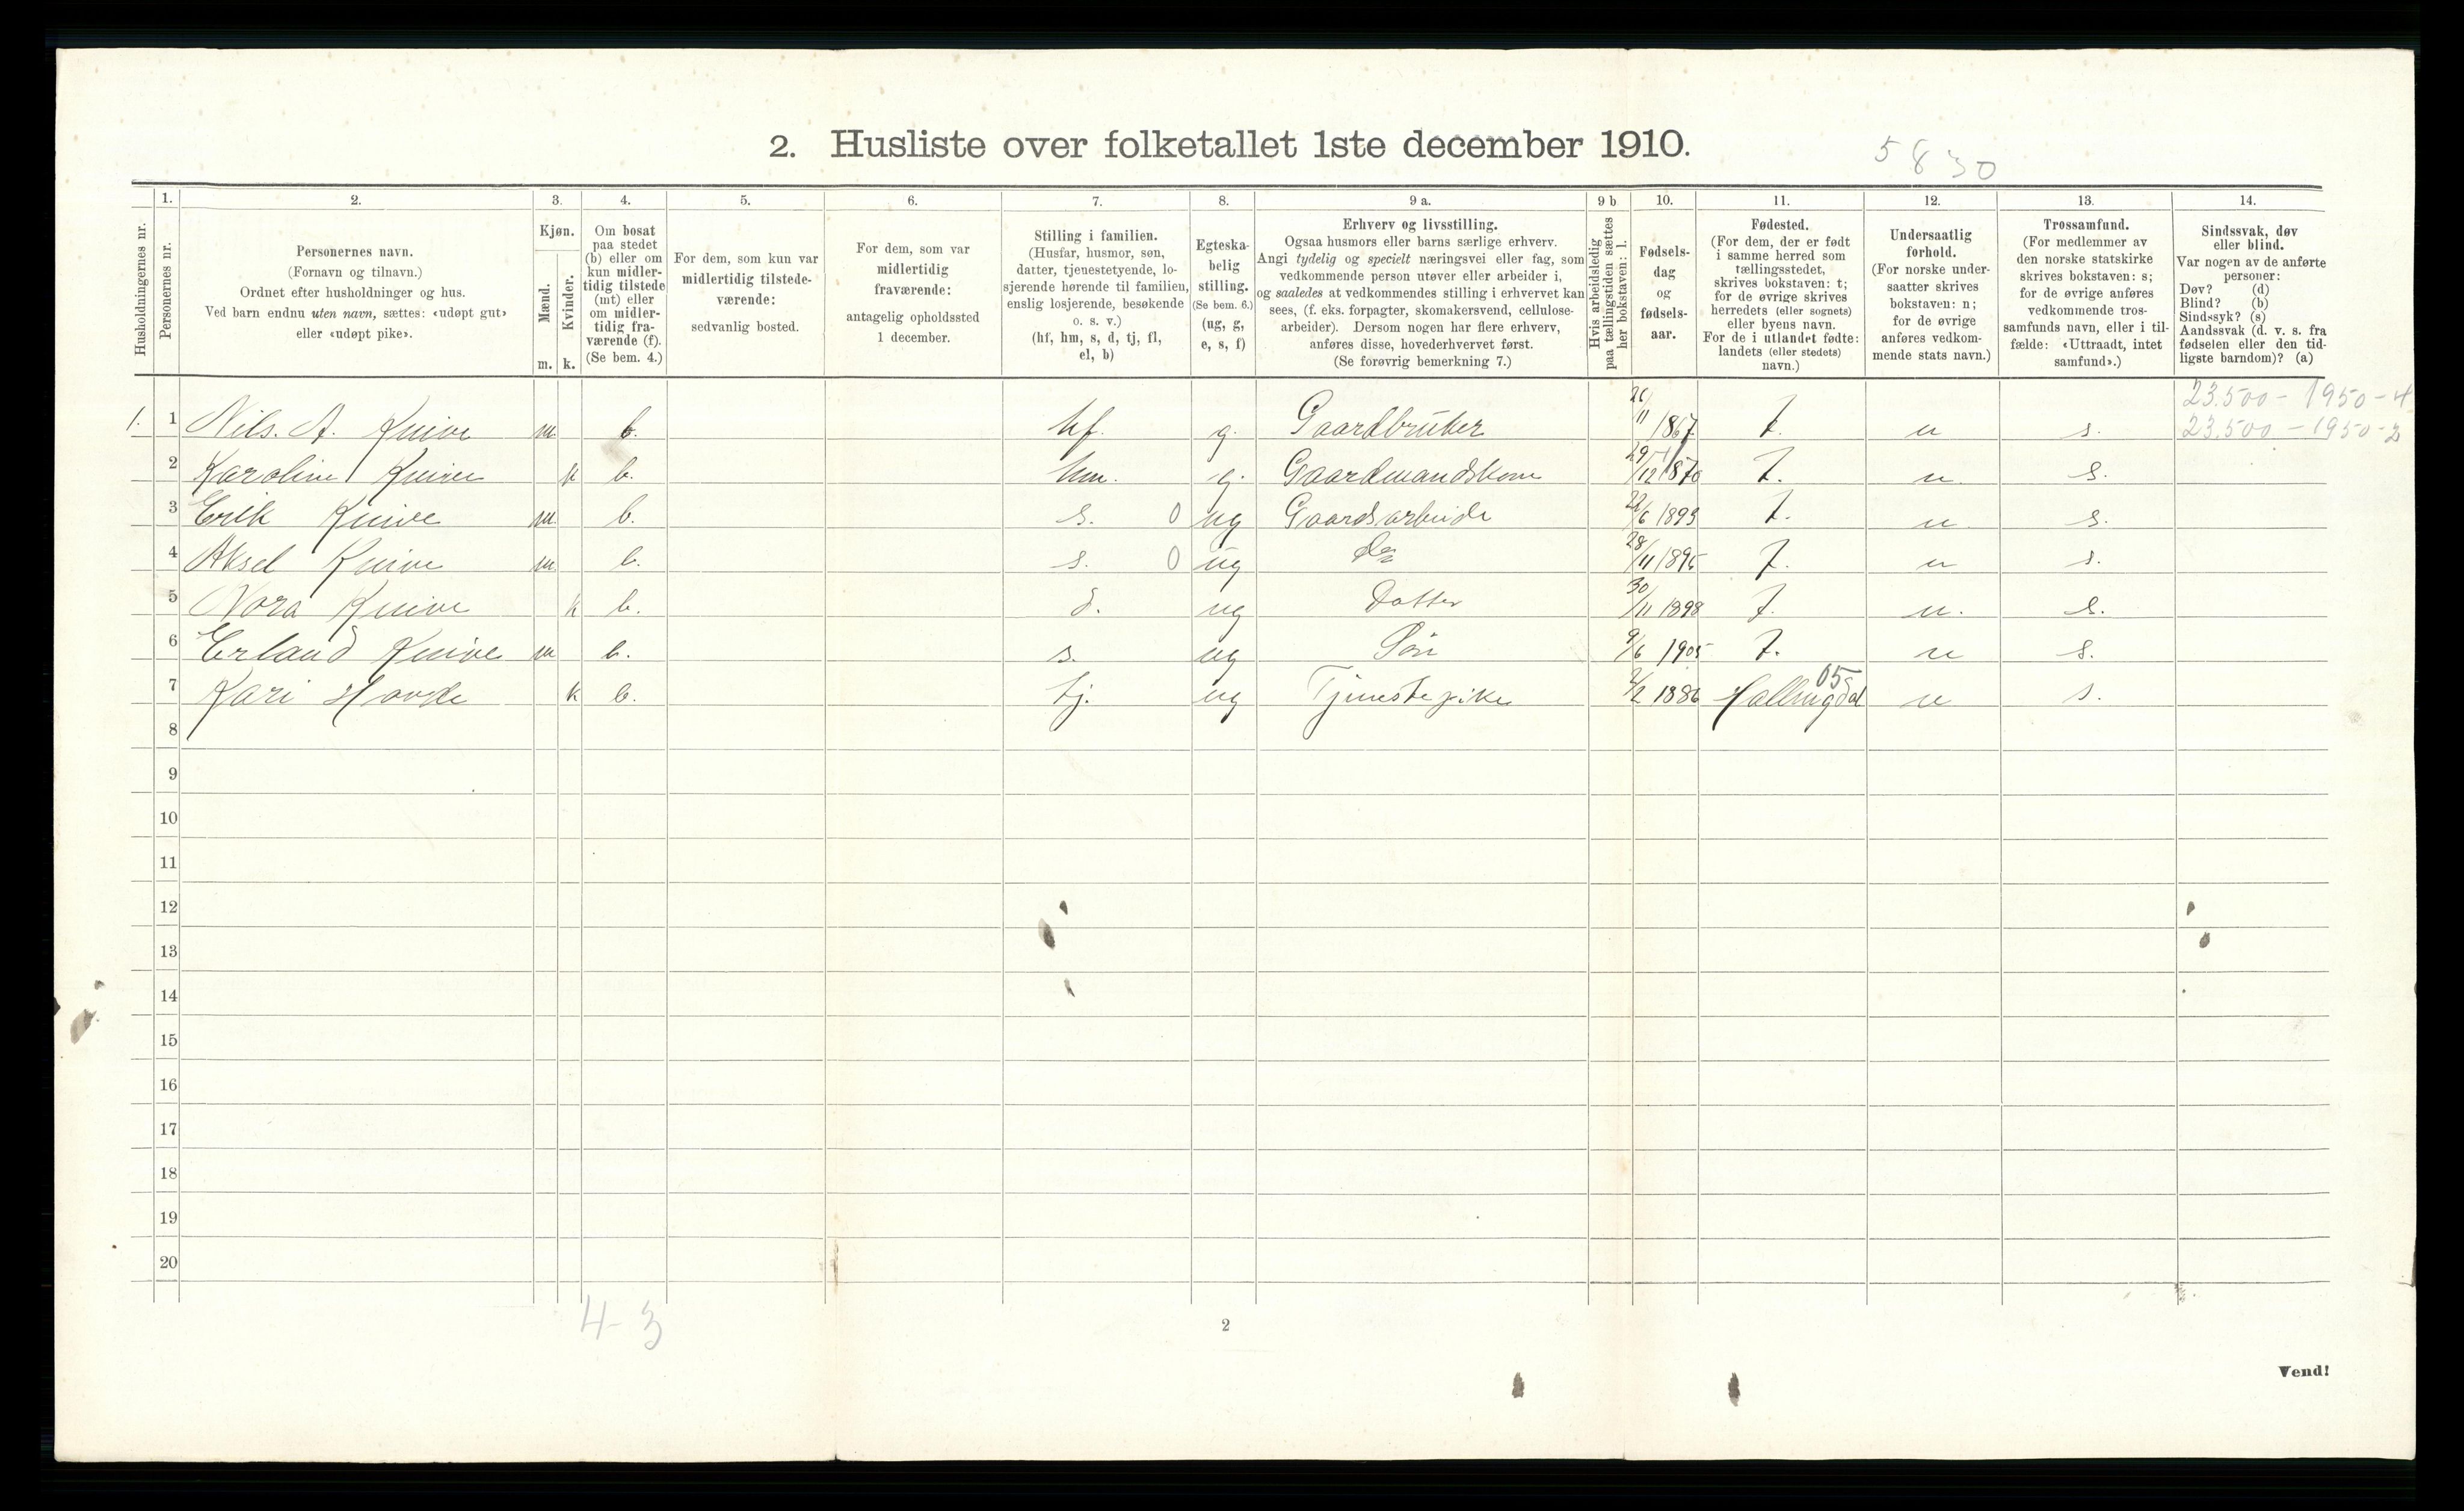 2. Husliste over folketallet 1ste december 1910.
5830
Husholdningernes nr.
1.
Personernes nr.
2.
Personernes navn.
(Fornavn og tilnavn.)
Ordnet efter husholdninger og hus.
Ved barn endnu uten navn, sættes: «udøpt gut»
eller «udøpt pike».
3.
Kjøn.
Mænd.
Kvinder.
m. k.
4.
Om bosat
paa stedet
(b) eller om
kun midler-
tidig tilstede
(mt) eller
om midler-
tidig fra-
værende (f).
(Se bem. 4.)
5.
For dem, som kun var
midlertidig tilstede-
værende:
sedvanlig bosted.
6.
For dem, som var
midlertidig
fraværende:
antagelig opholdssted
1 december.
7.
Stilling i familien.
(Husfar, husmor, søn,
datter, tjenestetyende, lo-
sjerende hørende til familien,
enslig losjerende, besøkende
o. s. v.)
(hf, hm, s, d, tj, fl,
el, b)
8.
Egteska-
belig
stilling.
(Se bem. 6.)
(ug, g,
e, s, f)
9 a.
Erhverv og livsstilling.
Ogsaa husmors eller barns særlige erhverv.
Angi tydelig og specielt næringsvei eller fag, som
vedkommende person utøver eller arbeider i,
og saaledes at vedkommendes stilling i erhvervet kan
sees, (f. eks. forpagter, skomakersvend, cellulose-
arbeider). Dersom nogen har flere erhverv,
anføres disse, hovederhvervet først.
(Se forøvrig bemerkning 7.)
9 b
Hvis arbeidsledig
paa tællingstiden sættes
her bokstaven: l.
10.
Fødsels-
dag
og
fødsels-
aar.
11.
Fødested.
(For dem, der er født
i samme herred som
tællingsstedet,
skrives bokstaven: t;
for de øvrige skrives
herredets (eller sognets)
eller byens navn.
For de i utlandet fødte:
landets (eller stedets)
navn.)
12.
Undersaatlig
forhold.
(For norske under-
saatter skrives
bokstaven: n;
for de øvrige
anføres vedkom-
mende stats navn.)
13.
Trossamfund.
(For medlemmer av
den norske statskirke
skrives bokstaven: s;
for de øvrige anføres
vedkommende tros-
samfunds navn, eller i til-
fælde: «Uttraadt, intet
samfund».)
14.
Sindssvak, døv
eller blind.
Var nogen av de anførte
personer:
Døv? (d)
Blind? (b)
Sindssyk? (s)
Aandssvak (d. v. s. fra
fødselen eller den tid-
ligste barndom)? (a)
23.500 - 1950 - 4
1. 1 Nils. A. Knive m. b. hf. g. Gaardbruker 26/11 1867 t. n s. 23.500 - 1950 - 3
2 Karoline Knive k b. hm. g. Gaardmandskone 29/12 1870 t. n. s.
3 Erik Knive m. b. s. 0 ug Gaardsarbeide 22/6 1893 t. n. s.
4 Aksel Knive m. b. s. 0 ug do 28/11 1895 t. n s.
5 Nora Knive k b. d. ug Datter 30/11 1898 t. n. s.
6 Erland Knive m b. s. ug Søn 9/6 1905 t. n s.
7 Kari Hovde k b. tj. ug Tjenestepike 2/2 1886 Hallingdal 05 n s.
8
9
10
11
12
13
14
15
16
17
18
19
20
4-3
2
Vend!